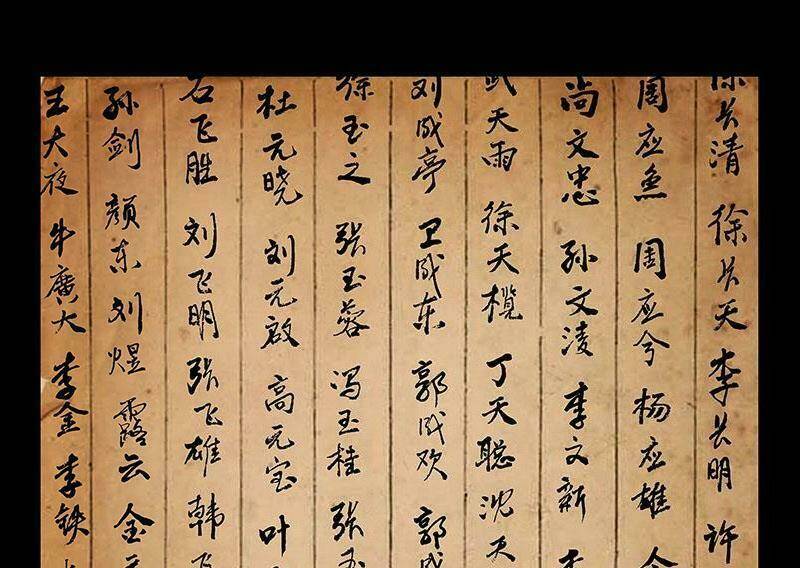 徐长清 徐长天 李长明 许
周应鱼 周应兮 杨应雄
尚文忠 孙文凌 李文新 李
武天雨 徐天榄 丁天聪 沈天
刘成亭 卫成东 郭成欢 郭成
徐玉之 张玉蓉 冯玉桂 张玉
杜元晓 刘元啟 高元宝 叶
石飞胜 刘飞明 张飞雄 韩飞
孙剑 颜东 刘煜 露云 金
王大夜 牛廣大 李金 李铁